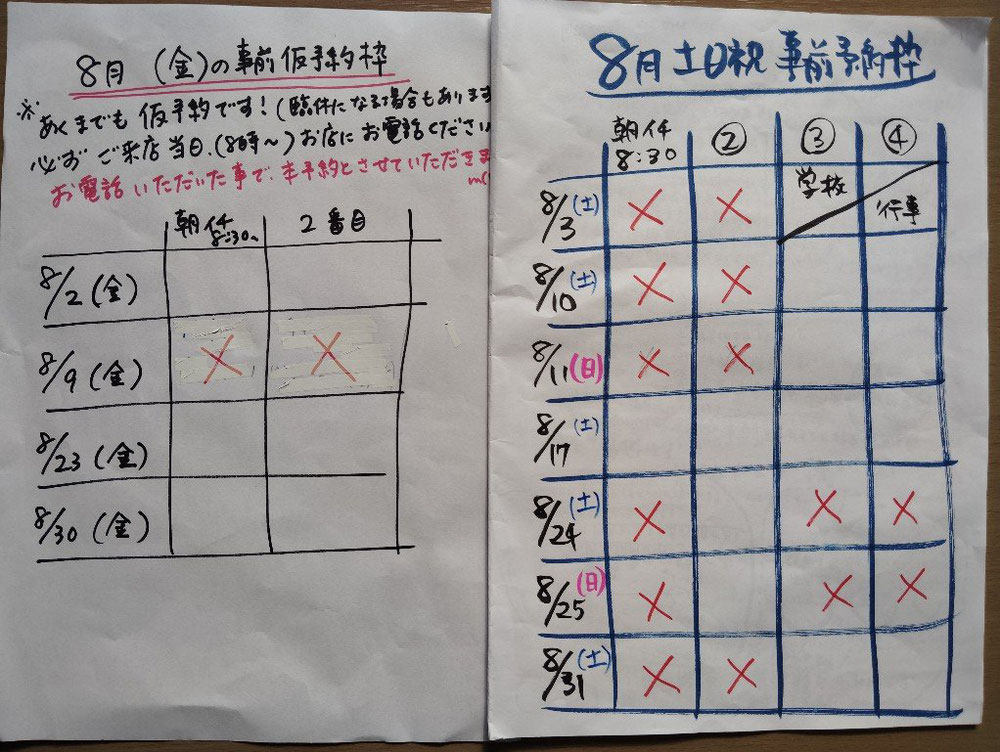 8月 (金)の事前仮予約枠
※あくまでも仮予約です!(臨休になる場合もあります
必ず ご来店当日、(8時〜)お店にお電話ください
お電話いただいた事で、本予約とさせていただきま
m(
朝イチ 8:30〜 2番目
8/2(金)
8/9(金) × ×
8/23(金)
8/30(金)
8月土日祝 事前予約枠
朝イチ 8:30 ② ③ ④
8/3(土) × × 学校 行事
8/10(土) × ×
8/11(日) × ×
8/17(土)
8/24(土) × × ×
8/25(日) × × ×
8/31(土) × ×